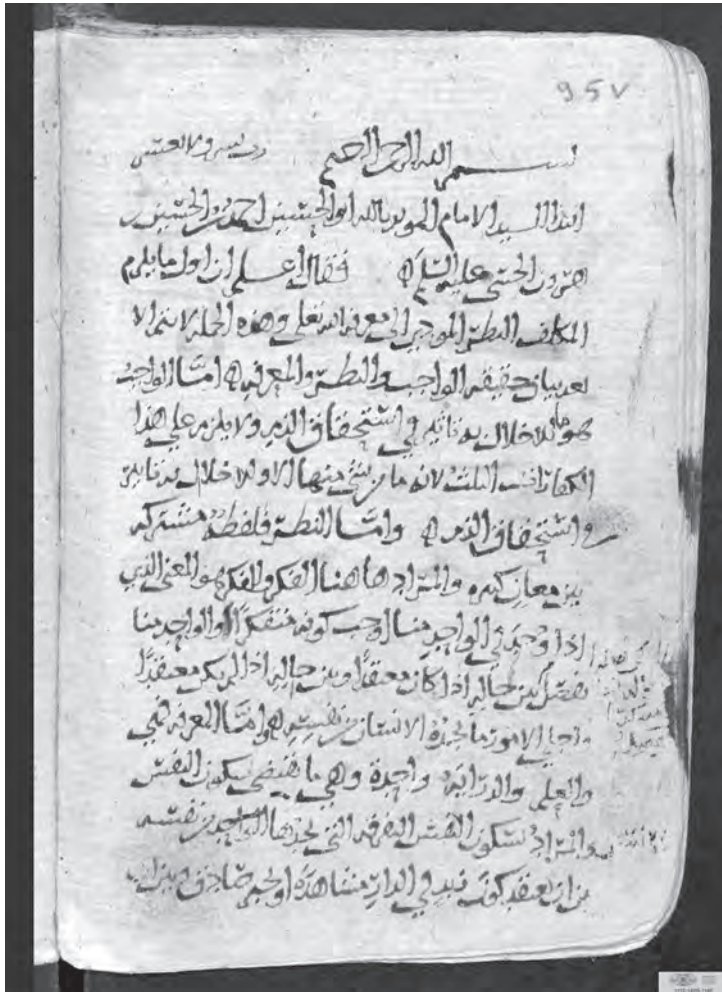 95v
بسم الله الرحمن الرحيم رب يسر ولا تعسر
السيد الامام المويد بالله ابو الحسين احمد بن الحسين بن
هرون الحسني عليه السلم فقال اعلم ان اول ما يلزم
المكلف النظر الموجب الى معرفة الله تعلى وهذه الجملة لا تتم الا
بعد بيان حقيقة الواجب والنظر والمعرفة اما الواجب
هو ما للاخلال به تاثير في استحقاق الذم ولا يلزم على هذا
الكفارات الثلث لانه ما من شي منها الا وللاخلال به تاثير
في استحقاق الذم واما النظر فلفظه مشتركه
بين معان كثيره والمراد هاهنا الفكر والفكر هو المعنى الذي
اذا وجد في الواحد منا اوجب كونه متفكرا والواحد منا
يفصل بين حاله اذا كان معتقدا وبين حاله اذا لم يكن معتقدا
الامور ما يجده الانسان من نفسه واما المعرفه فهي
والعلم والدرايه واحدة وهي ما يقتضي سكون النفس
والمراد بسكون النفس التفرقه التي يجدها الواحد من نفسه
بين ان يعتقد كون زيد في الدار مشاهدة او بخبر صادق وبين ان